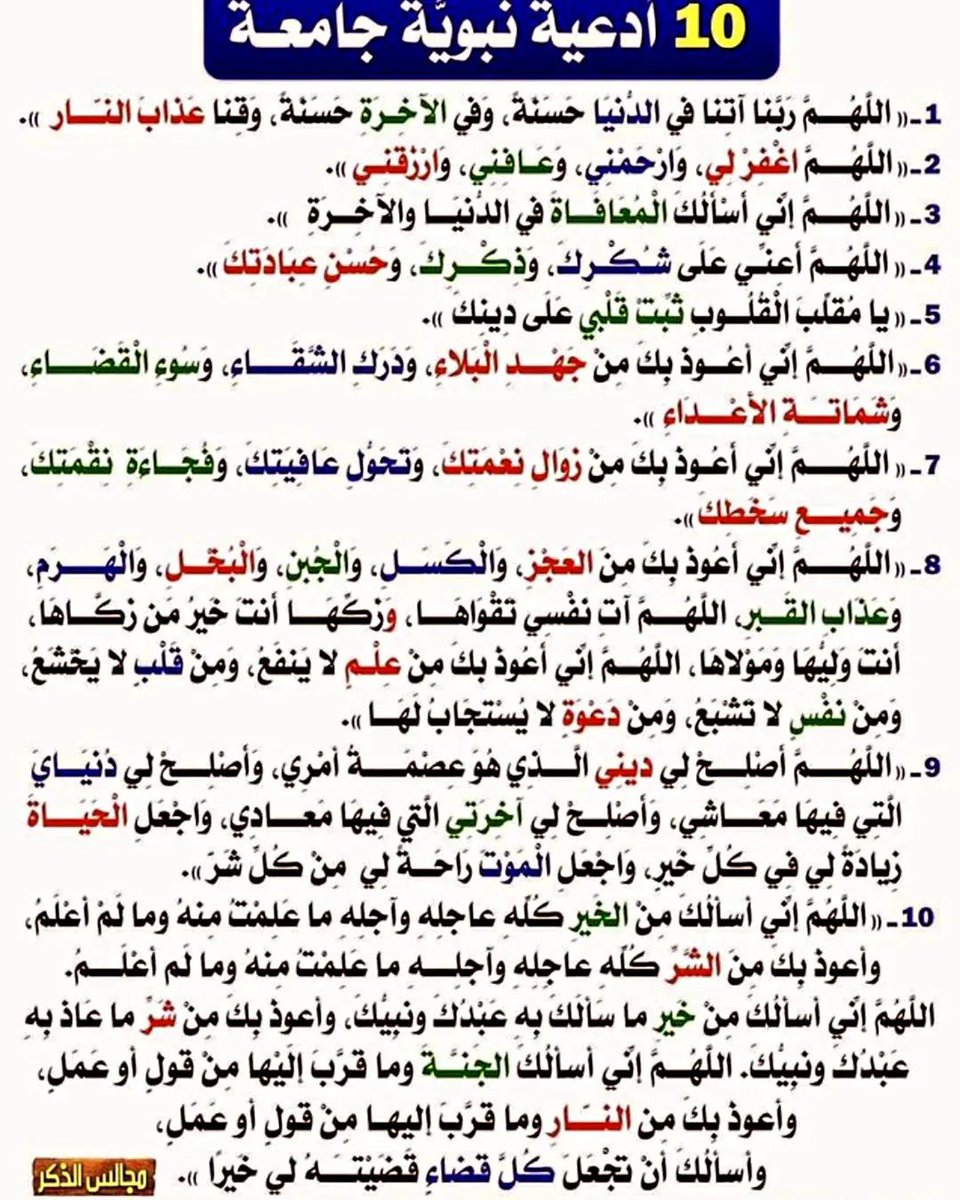 10 أدعية نبويَّة جامعـة
1ـ(( اللَّهُـــمَّ رَبَّنا آتِنا في الدُّنيَا حَسَنَةً، وَفي الآخِـرَةِ حَسَنةً، وَقِنا عَذابَ النـَــار )).
2ـ(( اللَّهُـــمَّ اغْفِرْ لِي، وَارْحَمْنِي، وَعَــافِنِي، وَارْزقنِــي )).
3ـ(( اللَّهُـــمَّ إنِّي أسْألُكَ الْمُعَافَـاةَ في الدُّنيَـا والآخِـرَةِ )).
4ـ(( اللَّهُـــمَّ أعِنِّـي عَلَى شُـكْـرِكَ، وَذِكْـرِكَ، وَحُسْنِ عِبَادَتِكَ )).
5ـ(( يا مُقلِّبَ الْقُلُــوبِ ثَبِّتْ قَلْبِي عَلَى دِينِكَ )).
6ـ(( اللَّهُـــمَّ إنِّي أعُــوذ بِكَ مِنْ جَهْــدِ الْبَلاءِ، وَدَرَكِ الشَّقَــاءِ، وَسُوءِ الْقَضَـــاءِ،
وَشمَاتـَــةِ الأعْــدَاءِ )).
7ـ(( اللَّهُـــمَّ إنِّي أعُـوذ بِكَ مِنْ زوَالِ نِعْمَتِكَ، وَتَحَوُّلِ عَافِيَتِكَ، وَفُجَـاءَةِ نِقْمَتِكَ،
وَجَمِيــعِ سَخَطِكَ )).
8ـ(( اللَّهُـــمَّ إنِّي أعُوذ بِكَ مِنَ العَجْزِ، وَالْكَسَــلِ، وَالْجُبنِ، وَالْبُخْــلِ، وَالْهَــرَمِ،
وَعَذابِ القَــبرِ، اللَّهُــمَّ آتِ نفْسِي تقْوَاهَـا، وَزكِّهَــا أنتَ خَيرُ مَن زكَّــاهَا،
أنتَ وَلِيُّهَا وَمَوْلاهَا، اللَّهُــمَّ إنِّي أعُوذ بكَ مِنْ عِلْـمِ لا يَنفَعُ، وَمِنْ قَلْبِ لا يَخْشَعُ،
وَمِنْ نفْسِ لا تشْبَعُ، وَمِنْ دَعْوَةِ لا يُسْتَجَابُ لَهَـا )).
9ـ(( اللَّهُـــمَّ أصْلِــحْ لي دِيني الَّــذِي هُوَ عِصْمَـــةُ أمْرِي، وَأصْلِــحْ لي دُنيَــايَ
الَّتِي فِيهَا مَعَــاشِي، وَأصْلِــحْ لي آخرَتِي الَّتِي فِيها مَعَــادِي، وَاجْعَلِ الْحَيَــاةَ
زِيادَةً لي في كُلِّ خَيرِ، وَاجْعَلِ الْمَوْتَ رَاحَــةً لِي مِنْ كُلِّ شَرّ )).
10ـ(( اللَّهُمَّ إنِّي أسألُكَ مِنْ الخَيرِ كُلِّهِ عاجِلِهِ وآجِلِهِ ما عَلِمْتُ مِنهُ وما لَمْ أعْلَمُ،
وأعوذ بِكَ مِنَ الشَرِّ كُلِّهِ عاجِلِهِ وآجِلِــهِ ما عَلِمْتُ مِنهُ وما لَم أعْلَــمُ.
اللَّهُمَّ إنِّي أسألُكَ مِنْ خَيرِ ما سَألَكَ بِهِ عَبْدُكَ ونبِيُّكَ، وأعوذ بِكَ مِنْ شَرِّ ما عَاذ بِهِ
عَبْدُكَ ونبِيُّكَ. اللَّهُــمَّ إنِّي أسألُكَ الجَنـَّـةَ وما قرَّبَ إلَيْها مِنْ قولِ أو عَمَلِ،
وأعوذ بِكَ مِن النـَّـار وما قرَّبَ إليهـا مِنْ قولِ أو عَمَلِ،
وأسألُكَ أنْ تجْعَلَ كُلَّ قضاءِ قضَيْتـَــهُ لي خَيرًا )).
مجالس الذكر